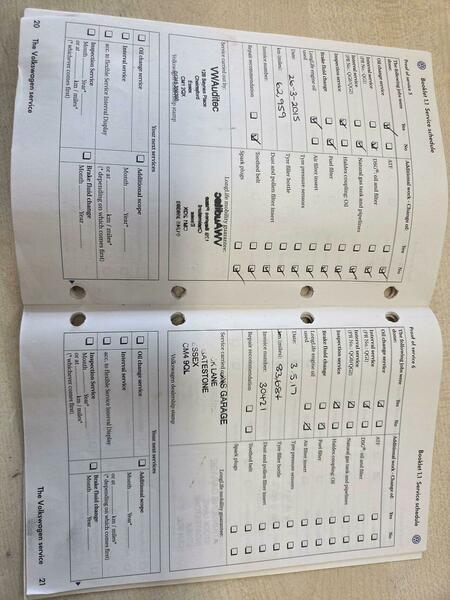 Booklet 1.1 Service schedule
Proof of service 5
The following jobs were done:
Yes
No
Oil change service
Interval service
(PR No. QG0/QG2)
Interval service
(PR No. QG1)
Inspection service
Brake fluid change
LongLife engine oil used
Date: 26-3-2015
km (miles): 62,959
Invoice number:
Repair recommendation
Service carried out by:
VWAuditec
Essex
Volkswagen dealership stamp
Additional work - Change of:
Yes
No
ATF
DSG® oil and filter
Natural gas tank and pipelines
Haldex coupling: Oil
Fuel filter
Air filter insert
Tyre pressure sensors
Tyre filler bottle
Dust and pollen filter insert
Toothed belt
Spark plugs
LongLife mobility guarantee:
Your next services
Oil change service
Interval service
acc. to flexible Service Interval Display
Inspection Service
Month Year*
or at km / miles*
(* whichever comes first)
Additional scope
Month Year*
or at km / miles*
(* depending on which comes first)
Brake fluid change
Month Year
20 The Volkswagen service
Booklet 1.1 Service schedule
Proof of service 6
The following jobs were done:
Yes
No
Oil change service
Interval service
(PR No. QG0/QG2)
Interval service
(PR No. QG1)
Inspection service
Brake fluid change
LongLife engine oil used
Date: 3.5.17
km (miles): 83684
Invoice number: 30421
Repair recommendation
Service carried out
GARAGE
LANE
ESSEX
CM4 9QL
Volkswagen dealership stamp
Additional work - Change of:
Yes
No
ATF
DSG® oil and filter
Natural gas tank and pipelines
Haldex coupling: Oil
Fuel filter
Air filter insert
Tyre pressure sensors
Tyre filler bottle
Dust and pollen filter insert
Toothed belt
Spark plugs
LongLife mobility guarantee:
Your next services
Oil change service
Interval service
acc. to flexible Service Interval Display
Inspection Service
Month Year*
or at km / miles*
(* whichever comes first)
Additional scope
Month Year*
or at km / miles*
(* depending on which comes first)
Brake fluid change
Month Year
The Volkswagen service 21